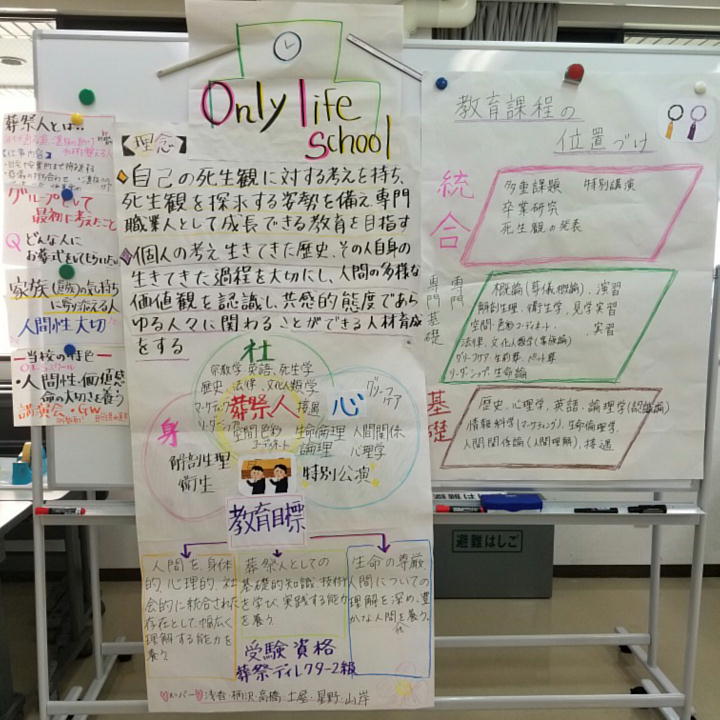 Only life
school
葬祭人とは…
【仕事内容】
グループとして
最初に考えたこと
Q どんな人に
お葬式をしてもらいたい
家族(遺族)の気持ち
に寄り添える人
人間性大切
当校の特色
・人間性・価値感
命の大切さを養う
講演会・GW
【理念】
自己の死生観に対する考えを持ち、
死生観を探求する姿勢を備え専門
職業人として成長できる教育を目指す
個人の考え生きてきた歴史、その人自身の
生きてきた過程を大切にし、人間の多様な
価値観を認識し、共感的態度であら
ゆる人々に関わることができる人材育成
をする
社
宗教学 英語、死生学
歴史、法律、文化人類学
マーケティング
リーダーシップ
葬祭人
接遇
空間色彩
コーディネート
心
グリーフ
ケア
生命倫理
論理
人間関係
心理学
特別公演
身
解剖生理
衛生
教育目標
人間を、身体
的、心理的、社
会的に統合された
存在として、幅広く
理解する能力を
養う
葬祭人としての
基礎的知識、技術
を学び、実践する能力
を養う
生命の尊厳
人間についての
理解を深め、豊
かな人間を養う。
性
受験資格
葬祭ディレクター2級
メンバー 浅香・柄沢・高橋・土屋・星野・山岸
教育課程の
位置づけ
統合
多重課題 特別講演
卒業研究
死生観の発表
専門
専門基礎
概論(葬儀概論)、演習
解剖生理、衛生学、見学実習
空間・色彩コーディネート、実習
法律、文化人類学(家族論)
グリーフケア・生前葬、ペット葬
リーダーシップ・生命論
基礎
歴史、心理学、英語、論理学(認識論)
情報科学(マーケティング)、生命倫理学、
人間関係論(人間理解)、接遇
避難はしご